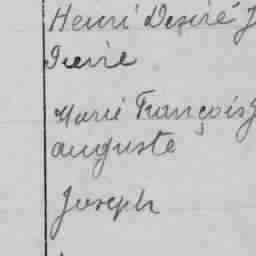 Henri Desiré J
Pierre
Marie François J
auguste
Joseph